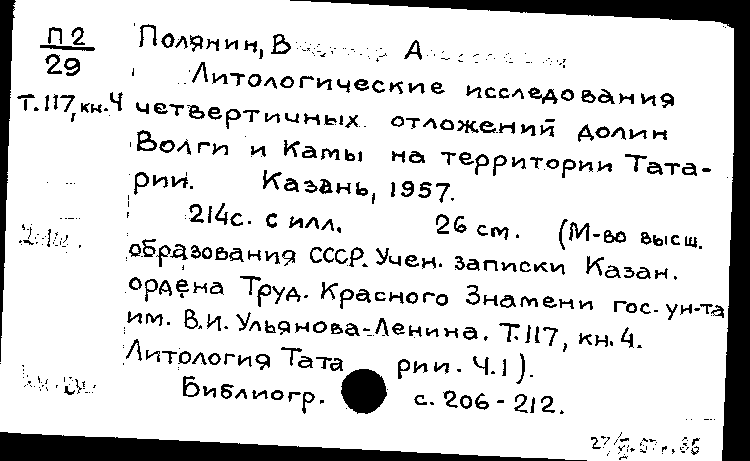 П2
29
Т.117, кн.4
Полянин, В А
Литологические исследования
четвертичных отложений долин
Волги и Камы на территории Тата-
рии. Казань, 1957.
214с. с илл. 26 см. (М-во высш.
образования СССР. Учен. записки Казан.
ордена Труд. Красного Знамени гос. ун-та
им. В.И. Ульянова-Ленина. Т.117, кн.4.
Литология Тата рии. Ч.1).
Библиогр. с. 206-212.